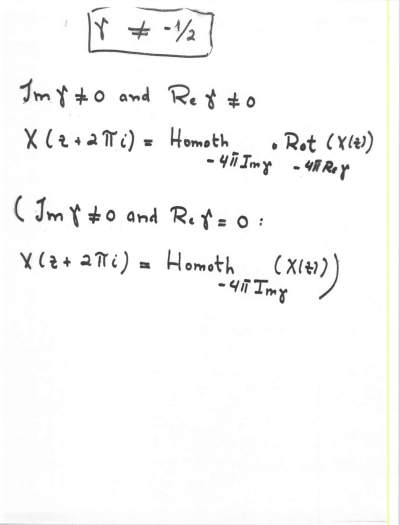 γ ≠ -1/2
Im γ ≠ 0 and Re γ ≠ 0
X(z + 2πi) = Homoth_{-4π Im γ} ∘ Rot_{-4π Re γ} (X(z))
( Im γ ≠ 0 and Re γ = 0 :
X(z + 2πi) = Homoth_{-4π Im γ} (X(z)) )